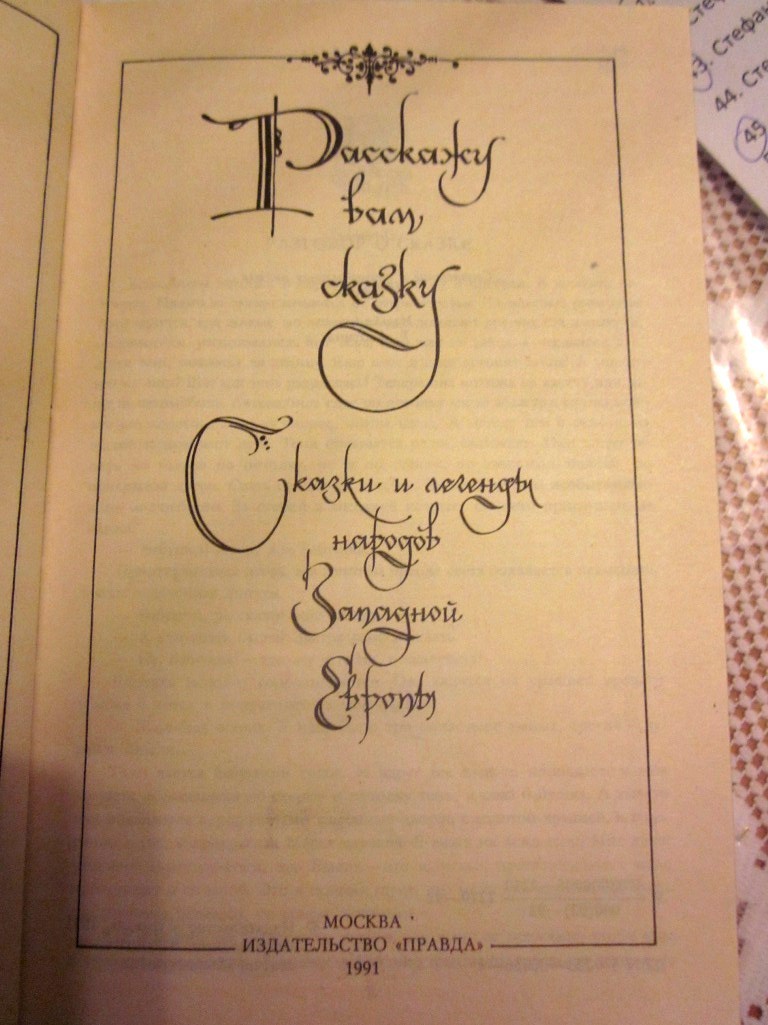 Расскажу
вам
сказку
Сказки и легенды
народов
Западной
Европы
МОСКВА
ИЗДАТЕЛЬСТВО «ПРАВДА»
1991
44. Сте
45